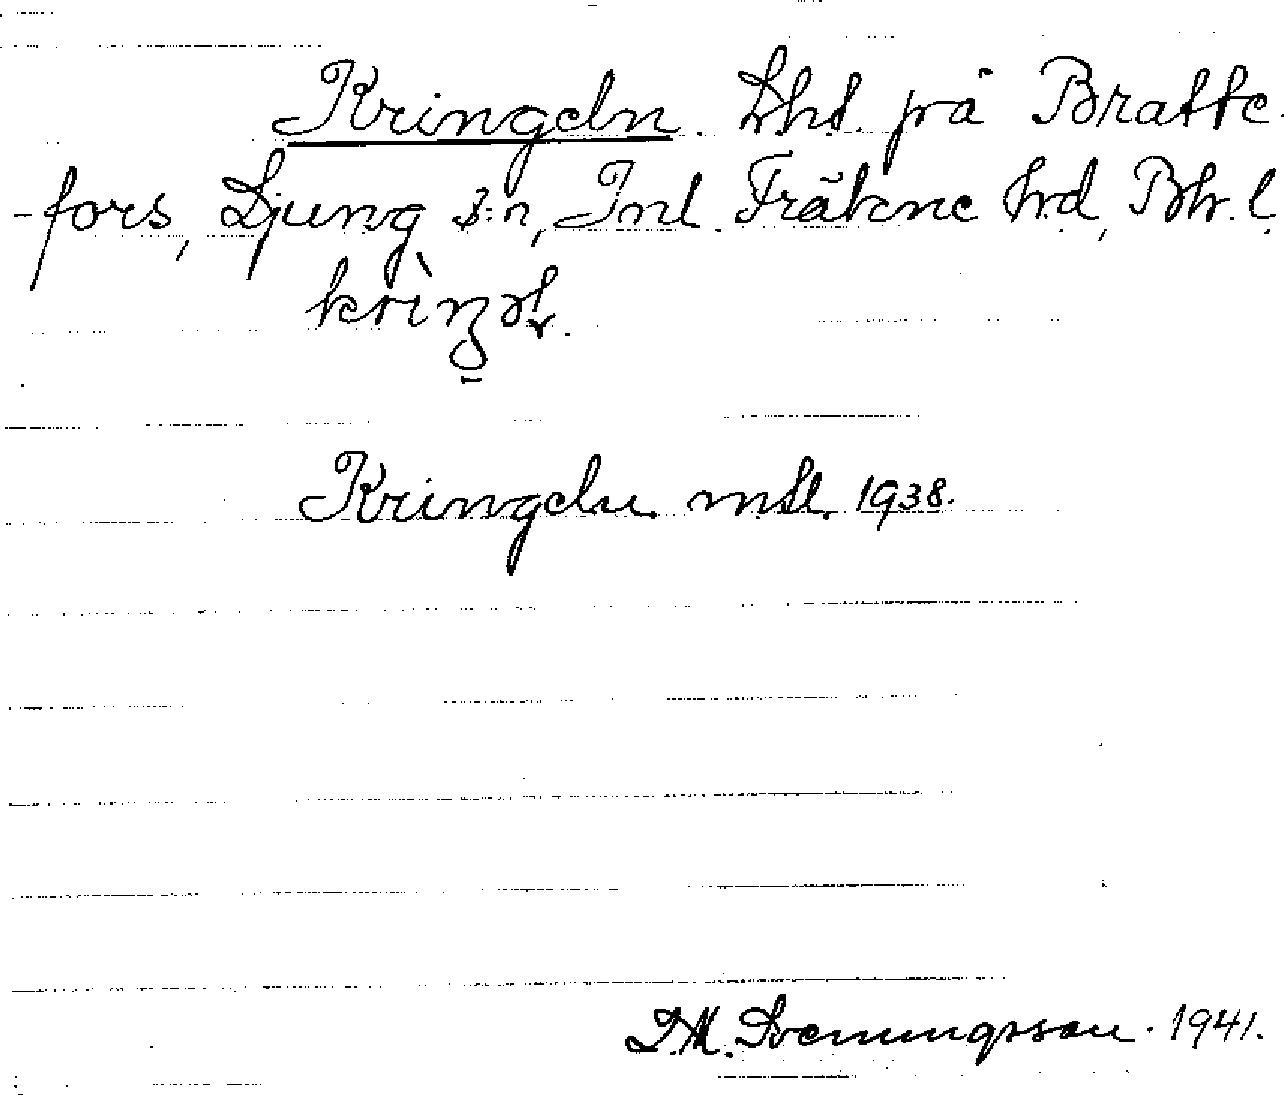 Kringeln. Lhs. på Bratte-
-fors, Ljung s:n, Inl. Fräkne hrd, Bhr. l.
Kringeln msl. 1938.
Svenungsson. 1941.